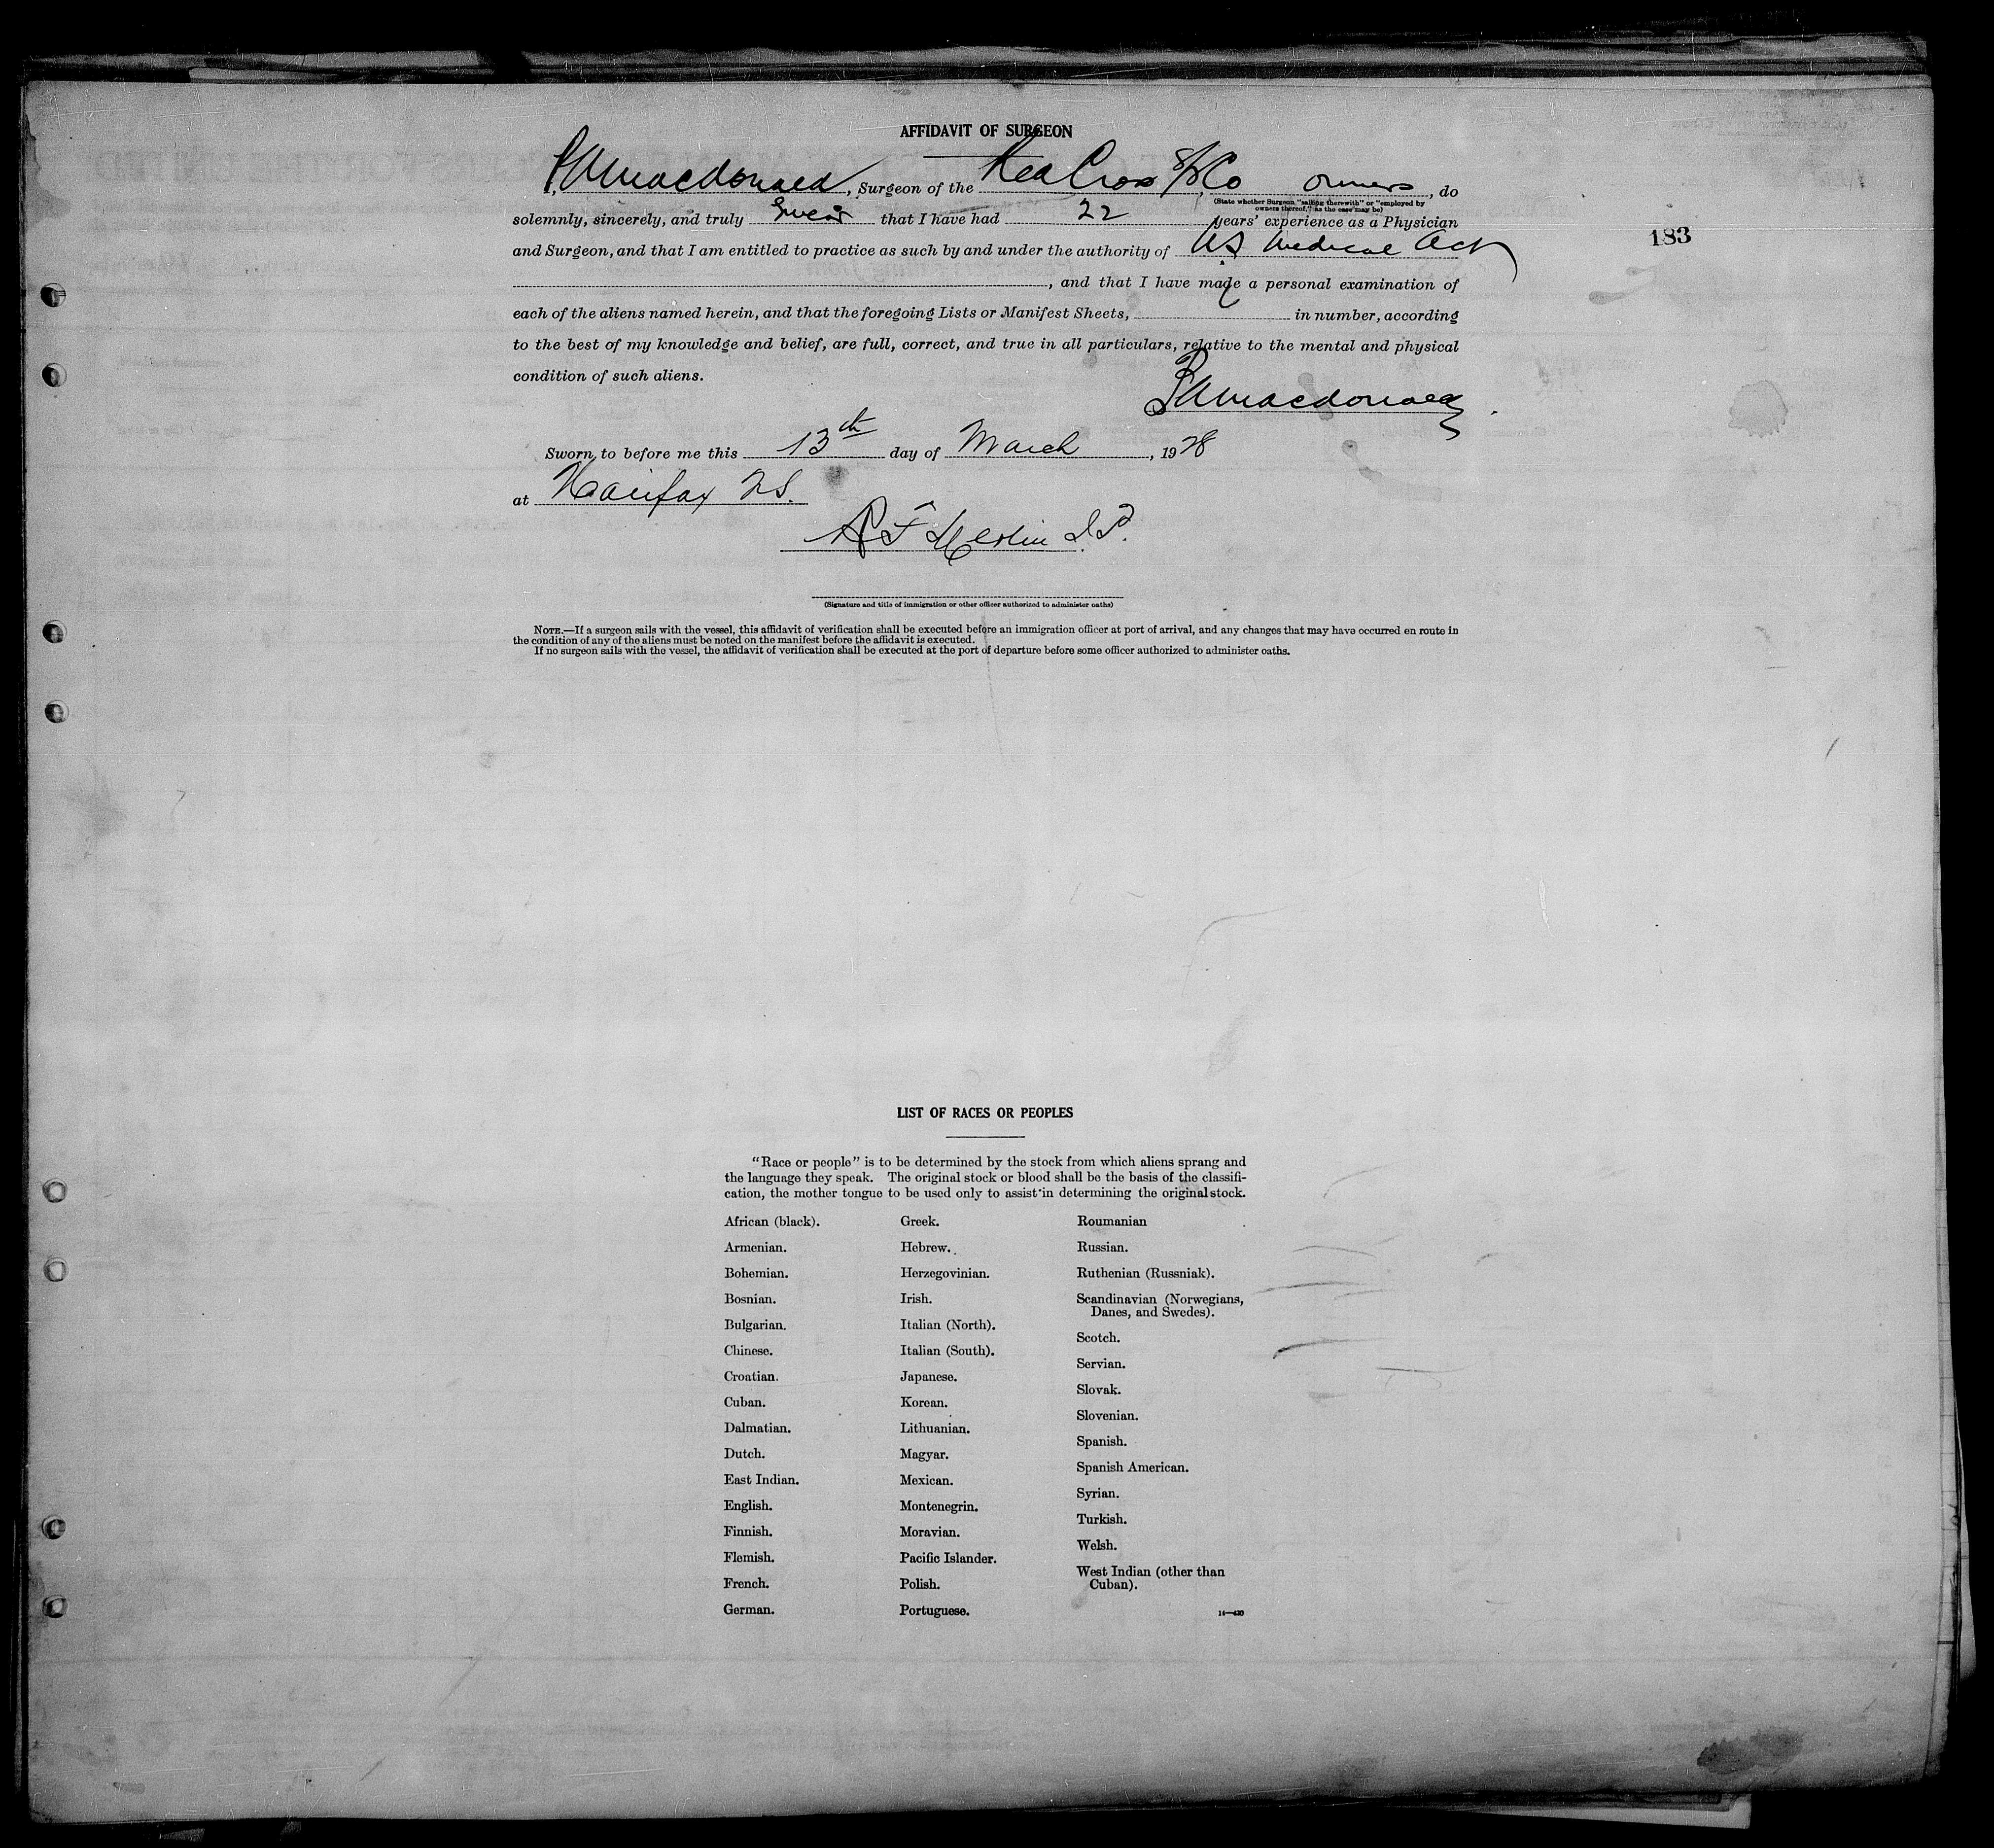 AFFIDAVIT OF SURGEON
I, P A Macdonald, Surgeon of the Red Cross S/S Co owners, do
(State whether Surgeon "sailing therewith" or "employed by
owners thereof," as the case may be)
solemnly, sincerely, and truly swear that I have had 22 years' experience as a Physician
183
and Surgeon, and that I am entitled to practice as such by and under the authority of NS Medical Act
, and that I have made a personal examination of
each of the aliens named herein, and that the foregoing Lists or Manifest Sheets, in number, according
to the best of my knowledge and belief, are full, correct, and true in all particulars, relative to the mental and physical
condition of such aliens.
P A Macdonald
Sworn to before me this 13th day of March, 1928
at Halifax NS.
(Signature and title of immigration or other officer authorized to administer oaths)
NOTE.—If a surgeon sails with the vessel, this affidavit of verification shall be executed before an immigration officer at port of arrival, and any changes that may have occurred en route in
the condition of any of the aliens must be noted on the manifest before the affidavit is executed.
If no surgeon sails with the vessel, the affidavit of verification shall be executed at the port of departure before some officer authorized to administer oaths.
LIST OF RACES OR PEOPLES
"Race or people" is to be determined by the stock from which aliens sprang and
the language they speak. The original stock or blood shall be the basis of the classifi-
cation, the mother tongue to be used only to assist in determining the original stock.
African (black).
Armenian.
Bohemian.
Bosnian.
Bulgarian.
Chinese.
Croatian.
Cuban.
Dalmatian.
Dutch.
East Indian.
English.
Finnish.
Flemish.
French.
German.
Greek.
Hebrew.
Herzegovinian.
Irish.
Italian (North).
Italian (South).
Japanese.
Korean.
Lithuanian.
Magyar.
Mexican.
Montenegrin.
Moravian.
Pacific Islander.
Polish.
Portuguese.
Roumanian
Russian.
Ruthenian (Russniak).
Scandinavian (Norwegians,
Danes, and Swedes).
Scotch.
Servian.
Slovak.
Slovenian.
Spanish.
Spanish American.
Syrian.
Turkish.
Welsh.
West Indian (other than
Cuban).